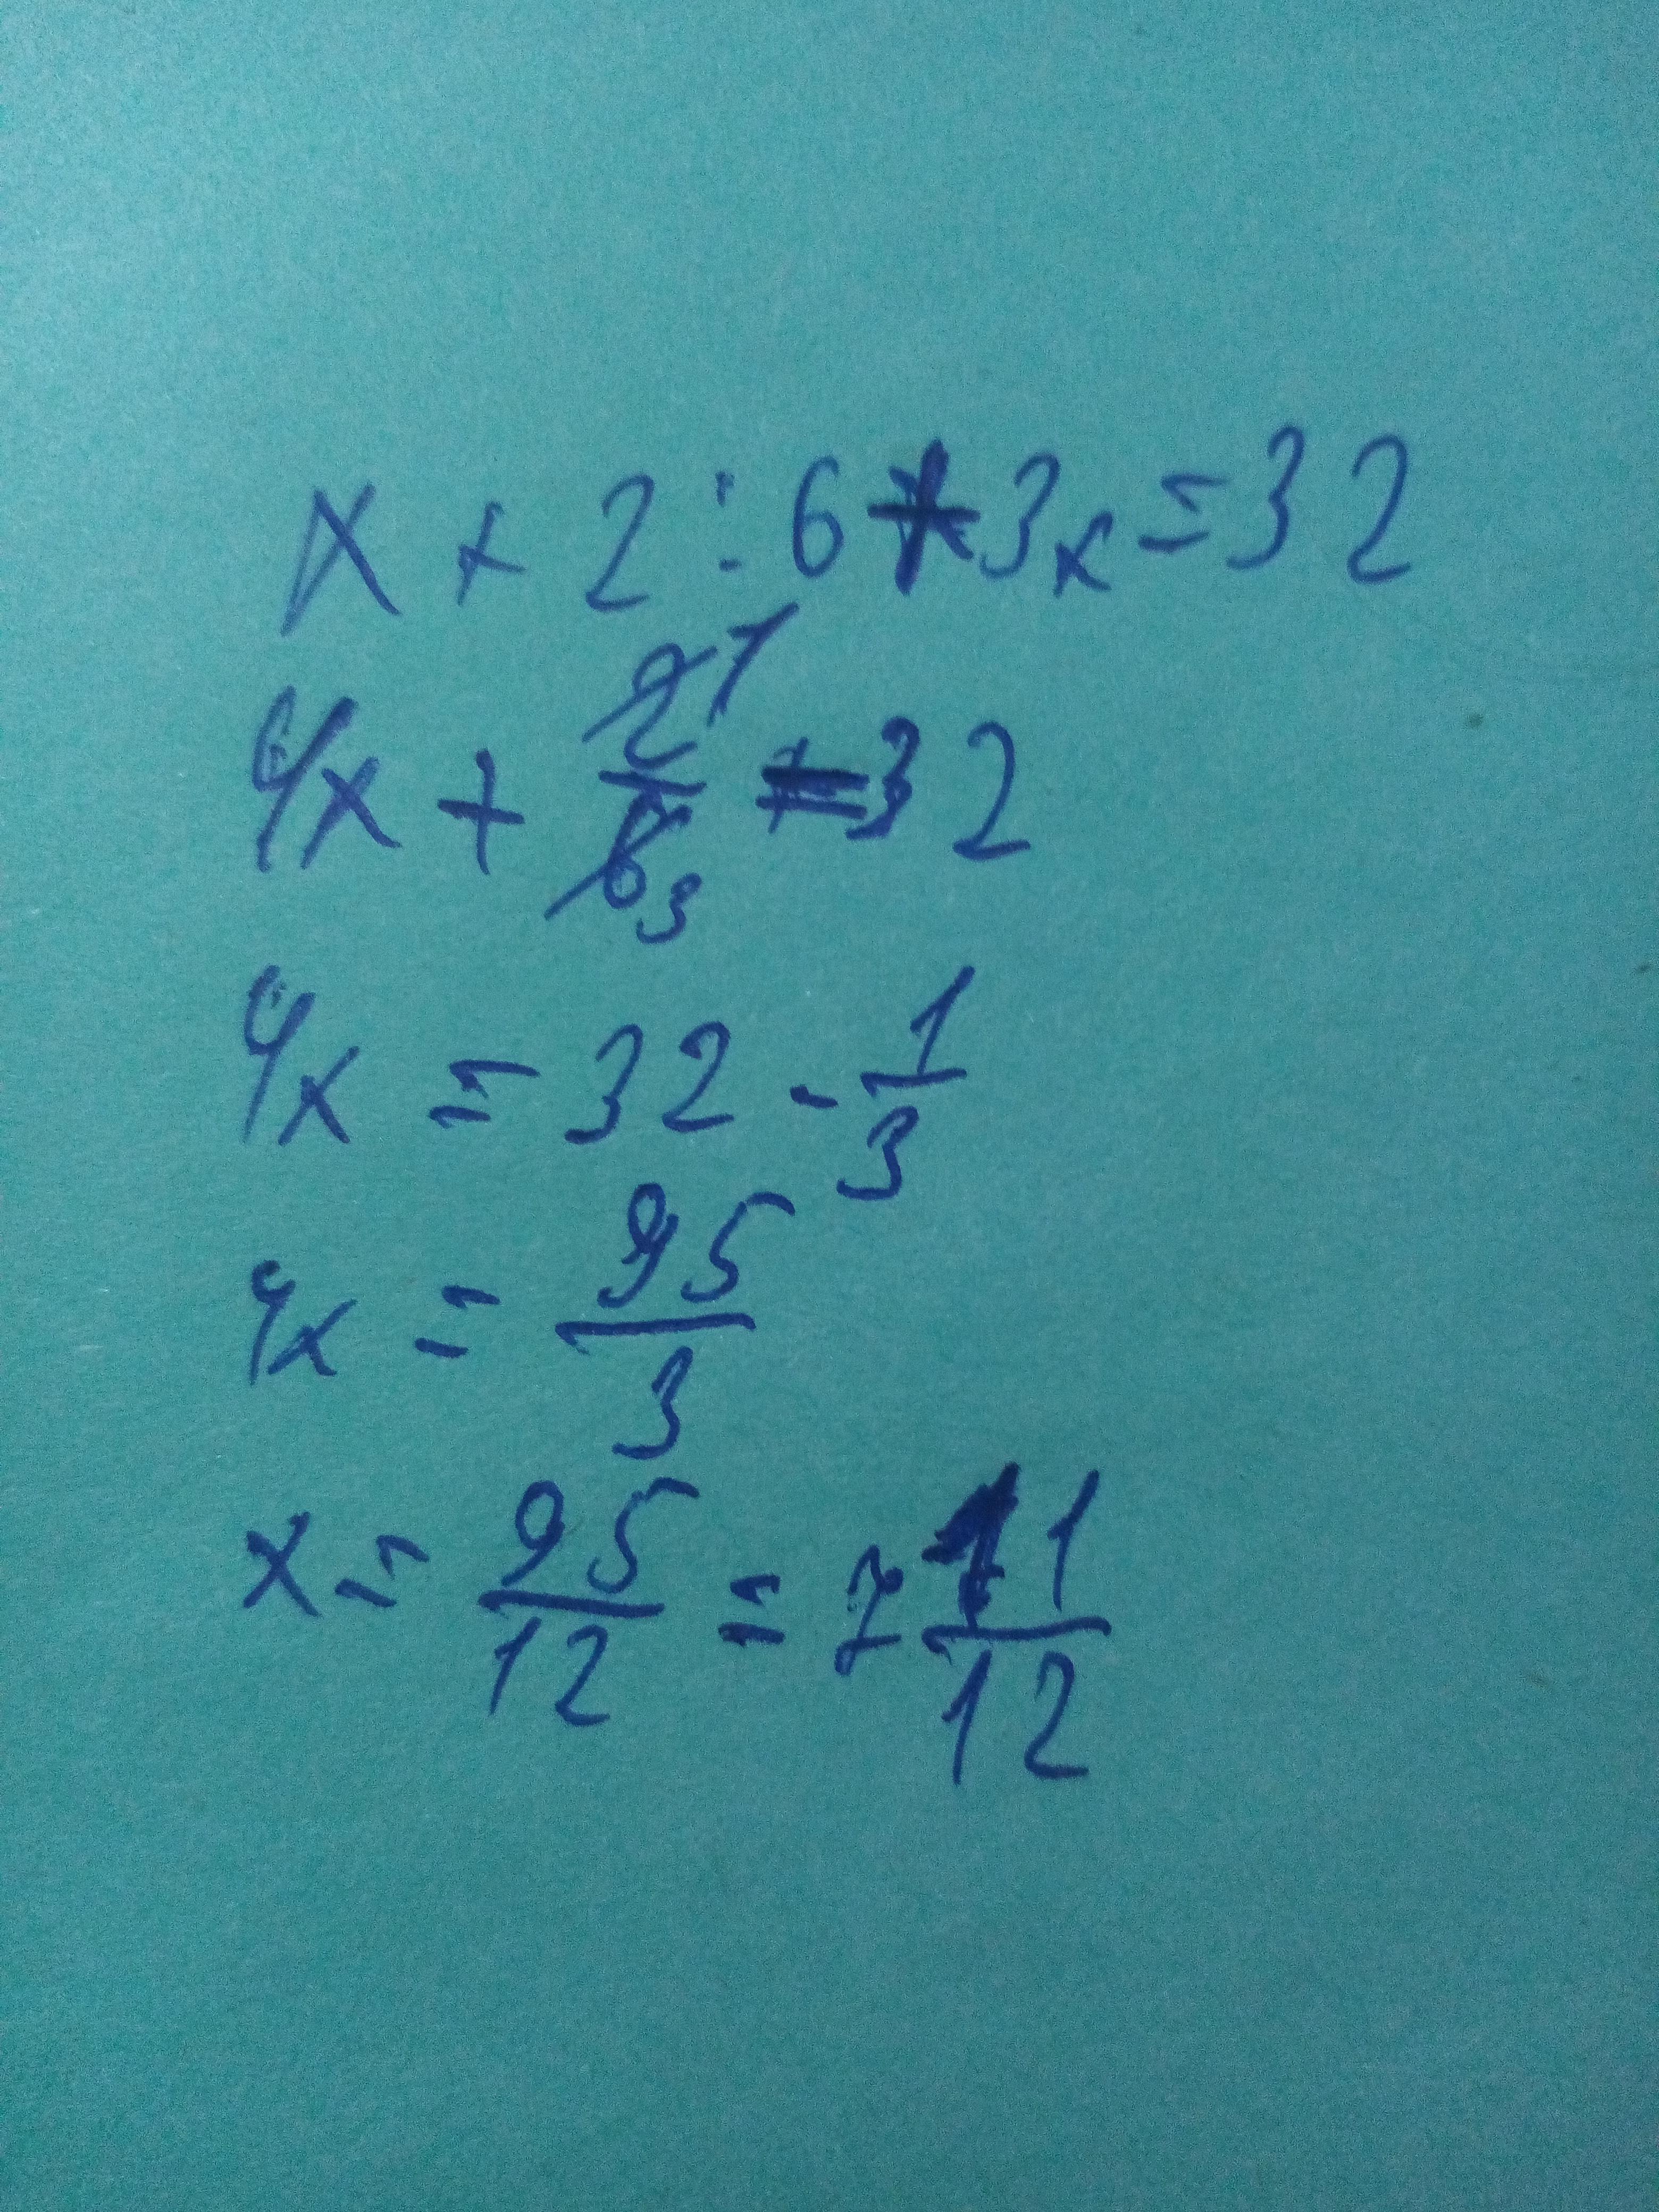 x + 2 : 6 + 3x = 32
4x + 2/6 1 3 = 32
4x = 32 - 1/3
4x = 95/3
x = 95/12 = 7 11/12